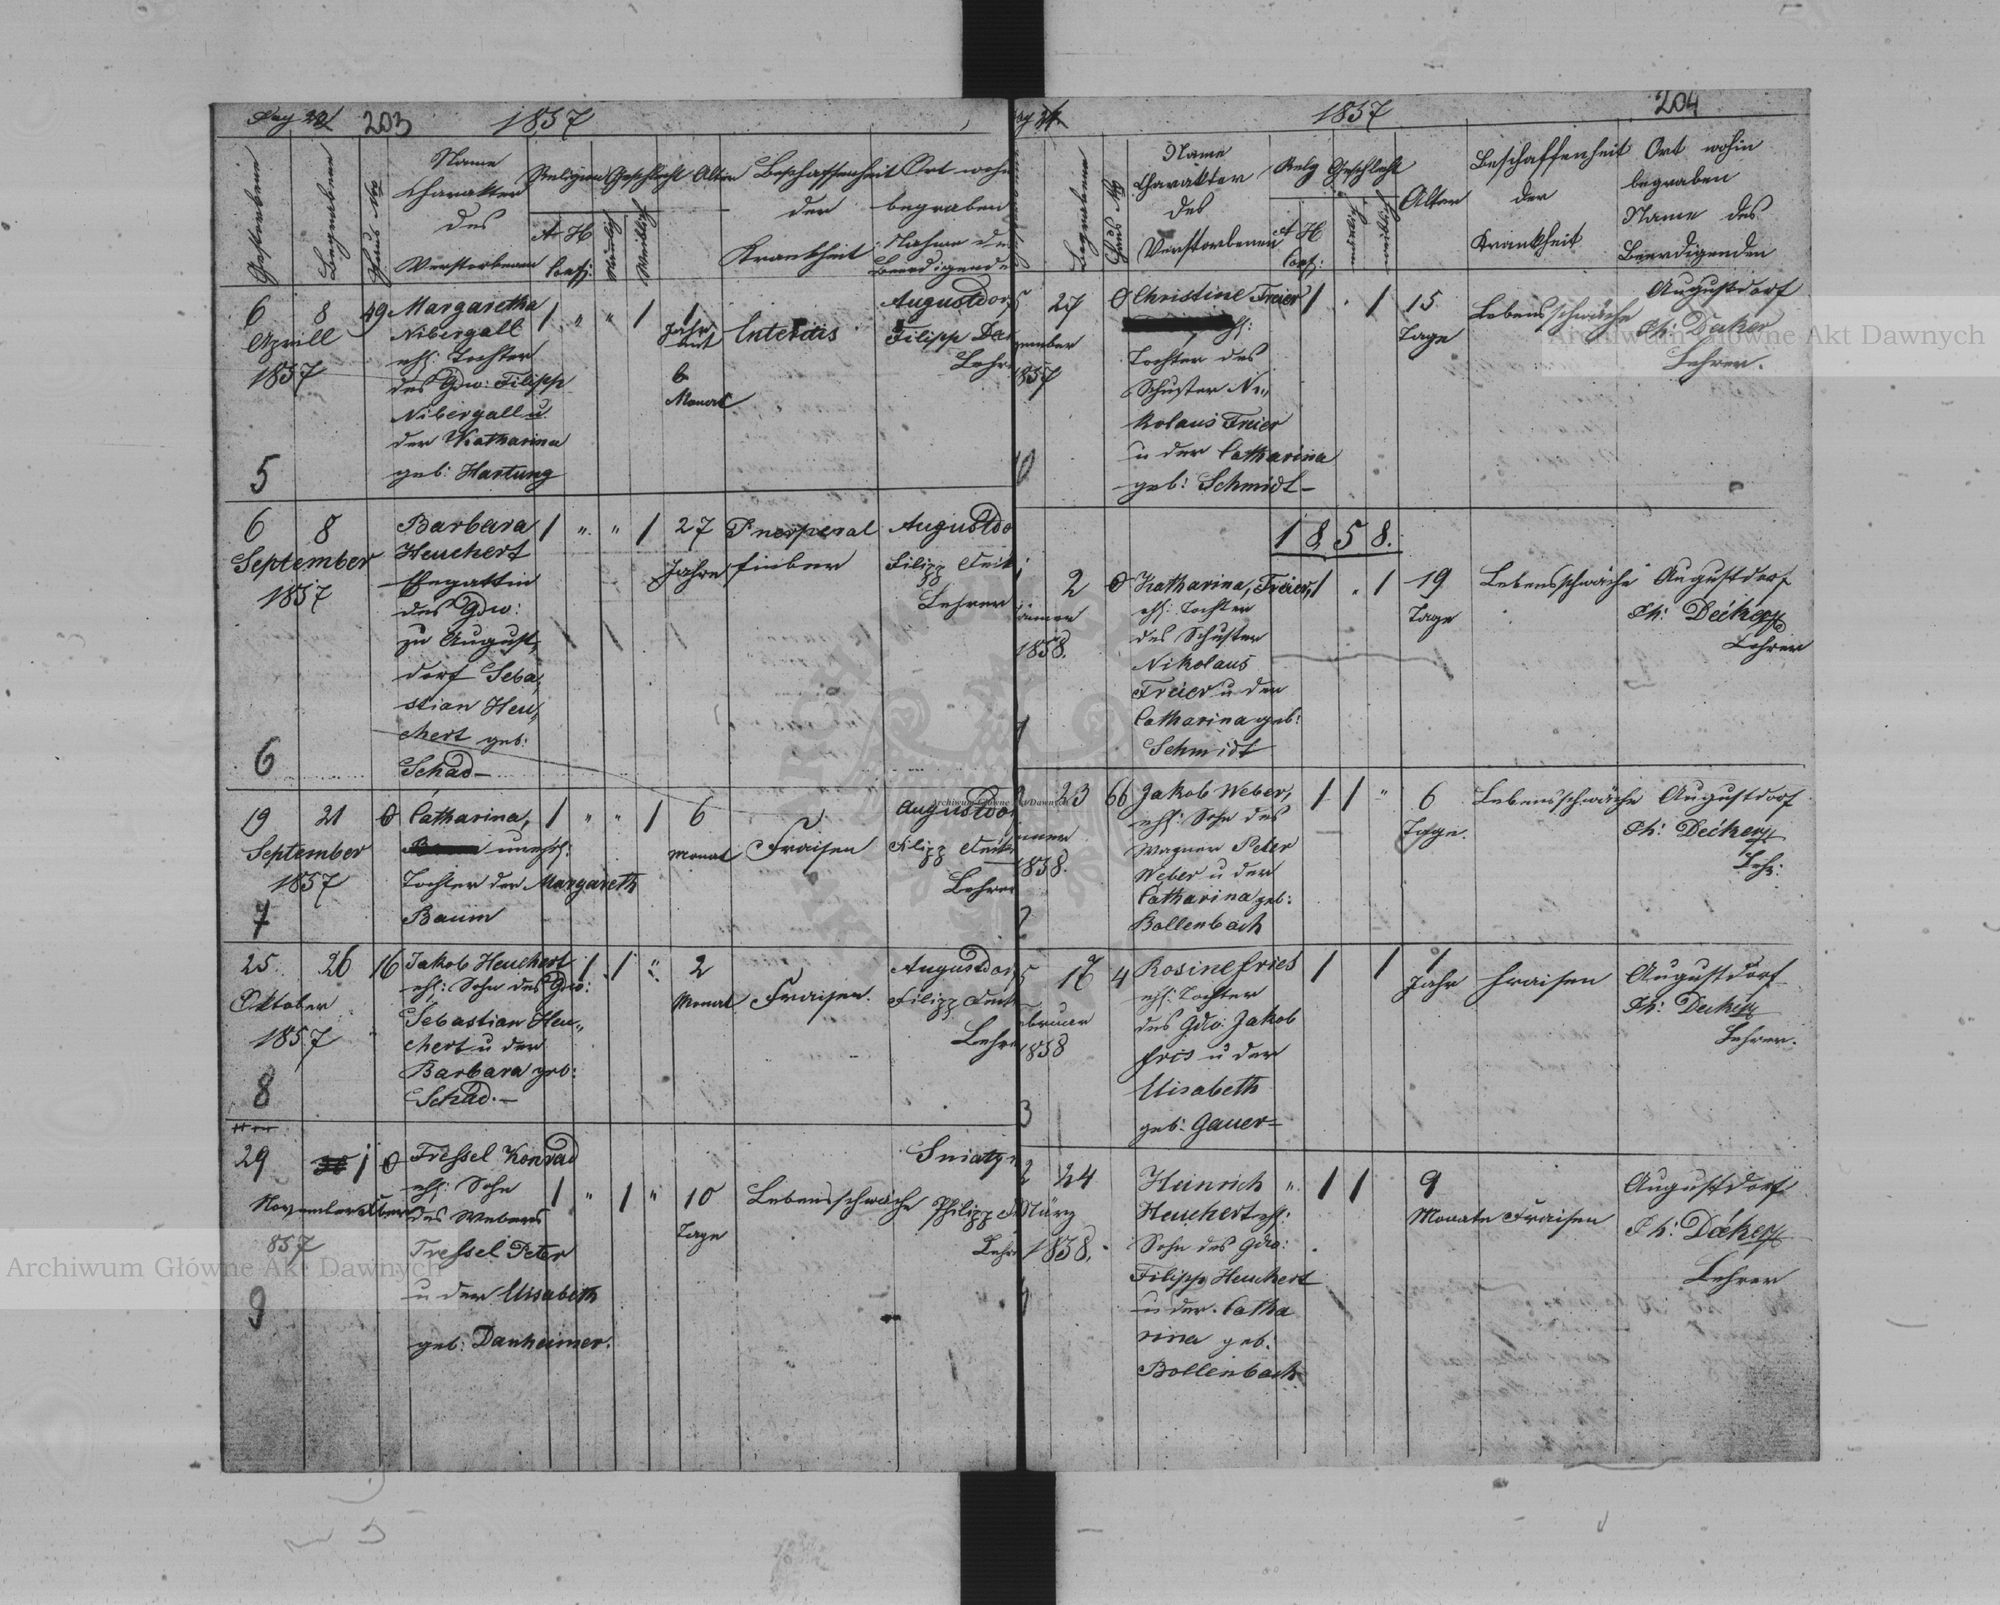 203
1857
Gestorbene
Begrabene
Haus No
Name
Charakter
des
Verstorbenen
Religion
A H
Conf:
Geschlecht
Männlich
Weiblich
Alter
Beschaffenheit
der
Krankheit
Ort wohin
begraben
Nahme des
Beerdigenden
6
Aprill
1857
5
8
49
Margaretha
Nibergall
ehl: Tochter
des Gdw: Filipp
Nibergall u.
der Katharina
geb: Hartung
1 " " 1
1
Jahr
6
Monat
Augustdorf
Filipp
Lehrer
6
September
1857
6
8
Barbara
Heuchert
Ehegattin
des Gdw:
zu August,
dorf Seba,
stian Heu,,
chert geb:
Schad-
1 " " 1
27
Jahre
Puerperal
fieber
Augustdo
Filipp
Lehrer
19
September
1857
7
21
0
Catharina,
unehl:
Tochter der Margareth
Baum
1 " " 1
6
Monat
Fraisen
Augustdor
Filipp
Lehrer
25
Oktober
1857
8
26
16
Jakob Heuchert
ehl: Sohn des Gdw:
Sebastian Heu,,
chert u der
Barbara geb:
Schad.-
1 1 "
2
Monat
Fraisen.
Augustdor
Filipp
Lehre
29
November
857
9
1
0
Tressel Konrad
ehl: Sohn
des Webers
Tressel Peter
u der Elisabeth
geb: Danheimer.
1 " 1 "
10
Tage
Lebensschwäche
Sniatyn
Philipp
Lehr
204
1857
Begrabene
Haus No
Name
Charakter
des
Verstorbenen
Relg
A H
Conf:
Geschlecht
männlich
weiblich
Alter
Beschaffenheit
der
Krankheit
Ort wohin
begraben
Name des
Beerdigenden
5
zember
1857
10
27
0
Christine Freier
ehl:
Tochter des
Schuster Ni,,
kolaus Freier
u der Catharina
geb: Schmidt-
1 . 1
15
Tage
Lebensschwäche
Augustdorf
Ph: Decker
Lehrer.
1858.
Jänner
1858.
1
2
0
Katharina, Freier,
ehl: Tochter
des Schuster
Nikolaus
Freier u der
Catharina geb:
Schmidt
1 . 1
19
Tage
Lebensschwäche
Augustdorf
Ph: Decker
Lehrer
nner
1858.
2
23
66
Jakob Weber,
ehl: Sohn des
Wagner Peter
Weber u der
Catharina geb:
Bollenbach
1 1 "
6
Tage.
Lebensschwäche
Augustdorf
Ph: Decker
Lehr:
5
ebruar
1858
3
16
4
Rosine fries
ehl: Tochter
des Gdw: Jakob
fris u der
Elisabeth
geb: Gauer=
1 1
1
Jahr
fraisen
Augustdorf
Ph: Decker
Lehrer.
2
März
1858.
24
Heinrich "
Heuchert ehl:
Sohn des Gdw:
Filipp Heuchert
u der Catha
rina geb:
Bollenbach
1 1
9
Monate
Fraisen
Augustdorf
Ph: Decker
Lehrer
Archiwum Główne Akt Dawnych
Archiwum Główne Akt Dawnych
Archiwum Główne Akt Dawnych